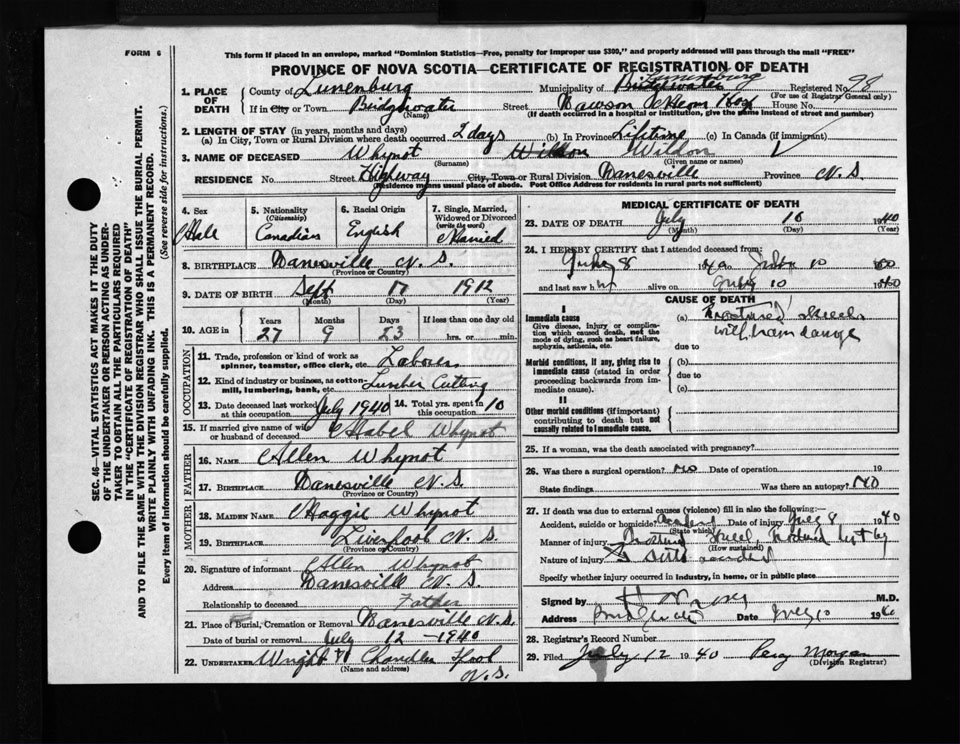 FORM 6
This form if placed in an envelope, marked "Dominion Statistics—Free, penalty for improper use $300," and properly addressed will pass through the mail "FREE"
PROVINCE OF NOVA SCOTIA—CERTIFICATE OF REGISTRATION OF DEATH
SEC. 46—VITAL STATISTICS ACT MAKES IT THE DUTY
OF THE UNDERTAKER OR PERSON ACTING AS UNDER-
TAKER TO OBTAIN ALL THE PARTICULARS REQUIRED
IN THE "CERTIFICATE OF REGISTRATION OF DEATH"
AND TO FILE THE SAME WITH THE DIVISION REGISTRAR WHO SHALL ISSUE THE BURIAL PERMIT.
WRITE PLAINLY WITH UNFADING INK. THIS IS A PERMANENT RECORD.
Every item of information should be carefully supplied. (See reverse side for instructions.)
1. PLACE OF DEATH
County of Lunenburg Municipality of Bridgewater Lunenburg Registered No 98
(For use of Registrar General only)
If in City or Town Bridgewater Street Dawson Hosp House No.
(Name) (If death occurred in a hospital or institution, give the name instead of street and number)
2. LENGTH OF STAY (in years, months and days)
(a) In City, Town or Rural Division where death occurred 2 days (b) In Province Lifetime (c) In Canada (if immigrant)
3. NAME OF DECEASED Whynot Wildon
(Surname) (Given name or names)
RESIDENCE No. Street Highway City, Town or Rural Division Danesville Province N.S.
(Residence means usual place of abode. Post Office Address for residents in rural parts not sufficient)
4. Sex Male
5. Nationality (Citizenship) Canadian
6. Racial Origin English
7. Single, Married, Widowed or Divorced (write the word) Married
8. BIRTHPLACE Danesville N.S.
(Province or Country)
9. DATE OF BIRTH Sept 17 1912
(Month) (Day) (Year)
10. AGE in Years Months Days If less than one day old
27 9 23 hrs. or min.
OCCUPATION
11. Trade, profession or kind of work as spinner, teamster, office clerk, etc. Labourer
12. Kind of industry or business, as cotton-mill, lumbering, bank, etc. Lumber Cutting
13. Date deceased last worked at this occupation July 1940 14. Total yrs. spent in this occupation 10
15. If married give name of wife or husband of deceased Mabel Whynot
FATHER
16. NAME Allen Whynot
17. BIRTHPLACE Danesville N.S.
(Province or Country)
MOTHER
18. MAIDEN NAME Maggie Whynot
19. BIRTHPLACE Liverpool N.S.
(Province or Country)
20. Signature of informant Allen Whynot
Address Danesville N.S.
Relationship to deceased Father
21. Place of Burial, Cremation or Removal Danesville N.S.
Date of burial or removal July 12 - 1940
22. UNDERTAKER Wright Chandler Lpool N.S.
(Name and address)
MEDICAL CERTIFICATE OF DEATH
23. DATE OF DEATH July 10 1940
(Month) (Day) (Year)
24. I HEREBY CERTIFY that I attended deceased from:
July 8 1940 July 10 1940
and last saw h alive on July 10 1940
CAUSE OF DEATH
I
Immediate cause
Give disease, injury or complication which caused death, not the mode of dying, such as heart failure, asphyxia, asthenia, etc.
(a) Fractured
with
due to
Morbid conditions, if any, giving rise to immediate cause (stated in order proceeding backwards from immediate cause).
(b)
due to
(c)
II
Other morbid conditions (if important) contributing to death but not causally related to immediate cause.
25. If a woman, was the death associated with pregnancy?
26. Was there a surgical operation? No Date of operation 19
State findings Was there an autopsy? No
27. If death was due to external causes (violence) fill in also the following:
Accident, suicide or homicide? Accident Date of injury July 8 1940
(State which)
Manner of injury
(How sustained)
Nature of injury
Specify whether injury occurred in industry, in home, or in public place
Signed by M.D.
Address Bridgewater Date July 10 1940
28. Registrar's Record Number
29. Filed July 12 1940 Percy Morgan
(Division Registrar)